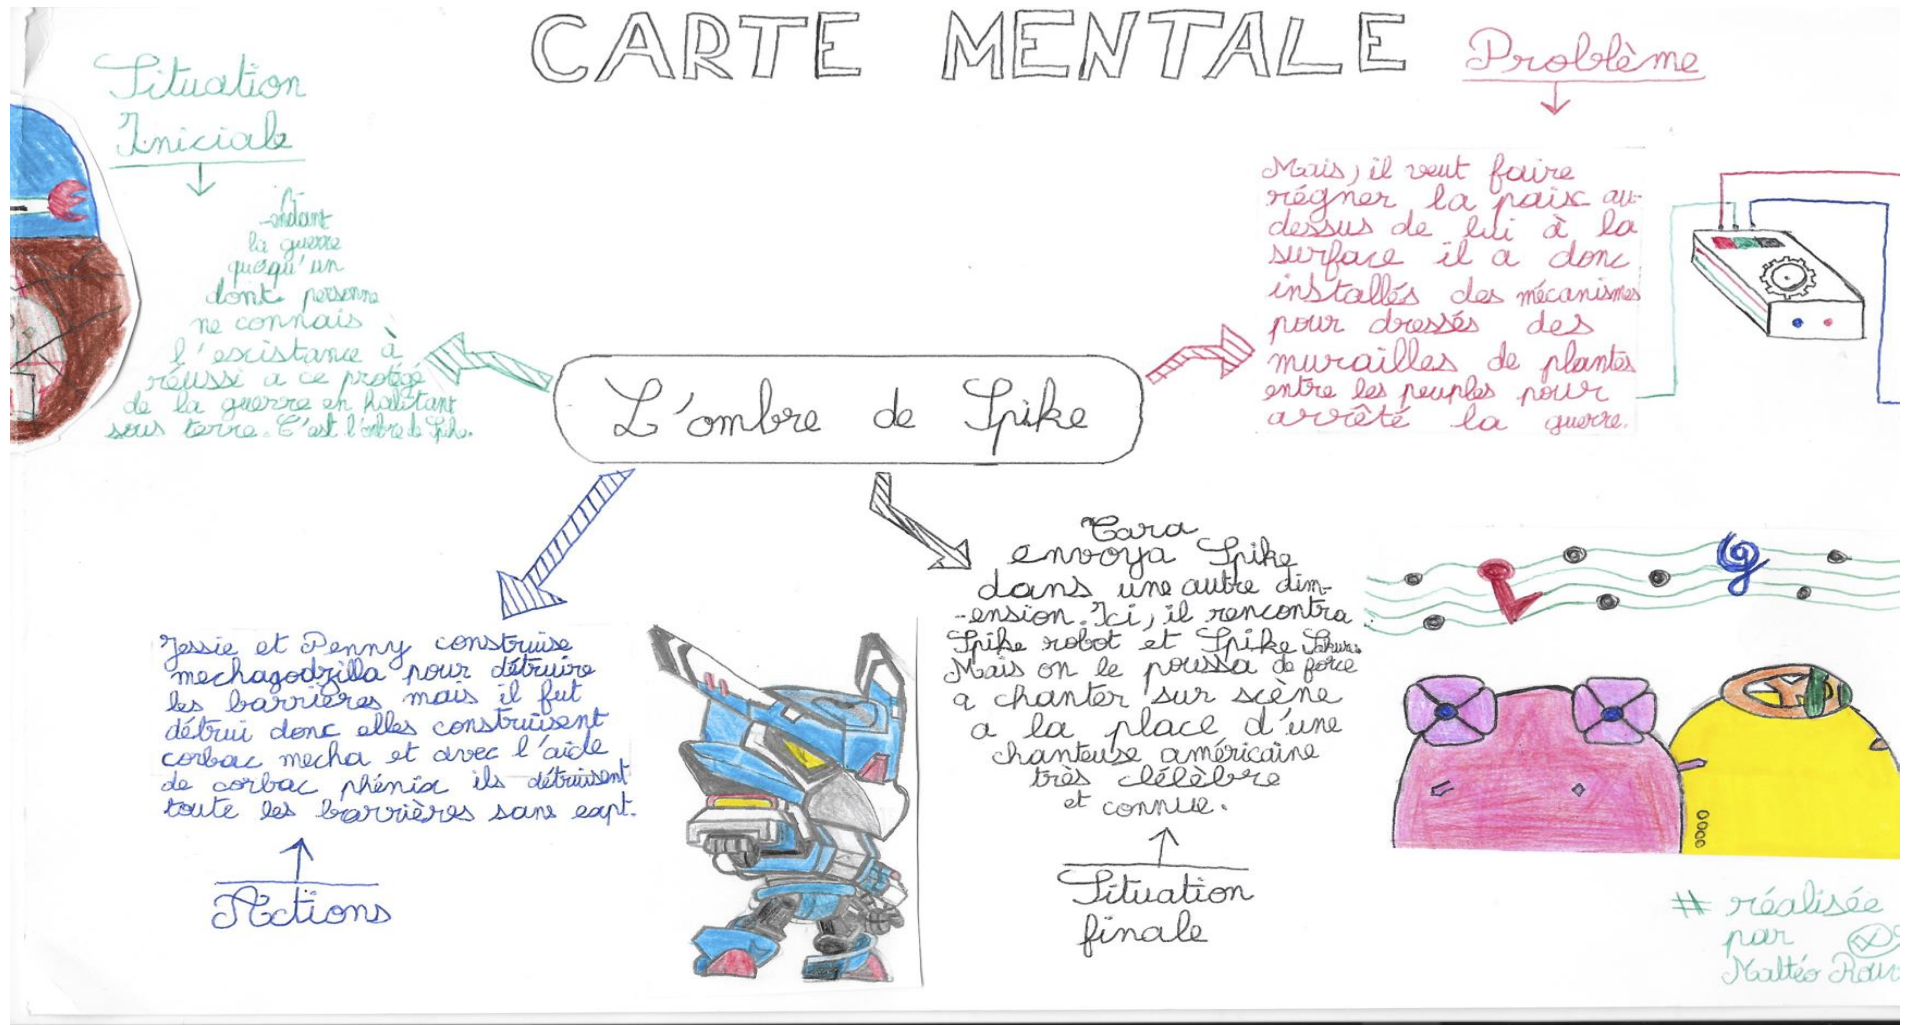 CARTE MENTALE
Situation
Iniciale
P
-endant
la guerre
quequ'un
dont personne
ne connais
l'existance à
réussi a ce protégé
de la guerre en habitant
sous terre. C'est l'ombre de Spike.
Problème
Mais, il veut faire
régner la paix au-
dessus de lui à la
surface il a donc
installés des mécanismes
pour dressés des
murailles de plantes
entre les peuples pour
arrêté la guerre.
L'ombre de Spike
Jessie et Penny construise
mechagodzilla pour détruire
les barrières mais il fut
détrui donc elles construisent
corbac mecha et avec l'aide
de corbac phénix ils détruisent
toute les barrières sans
Actions
Tara
envoya Spike
dans une autre dim-
-ension. Ici, il rencontra
Spike robot et Spike Sakura.
Mais on le poussa de force
a chanter sur scène
a la place d'une
chanteuse américaine
très célèbre
et connue.
Situation
finale
# réalisée
par
Mattéo